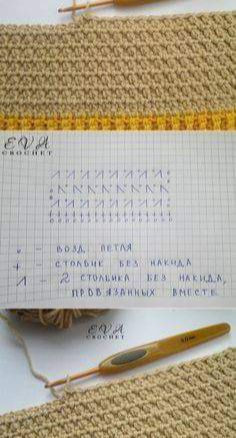 EVA
CROCHET
• – ВОЗД. ПЕТЛЯ
+ – СТОЛБИК БЕЗ НАКИДА
Λ – 2 СТОЛБИКА БЕЗ НАКИДА,
ПРОВЯЗАННЫХ ВМЕСТЕ
EVA
CROCHET